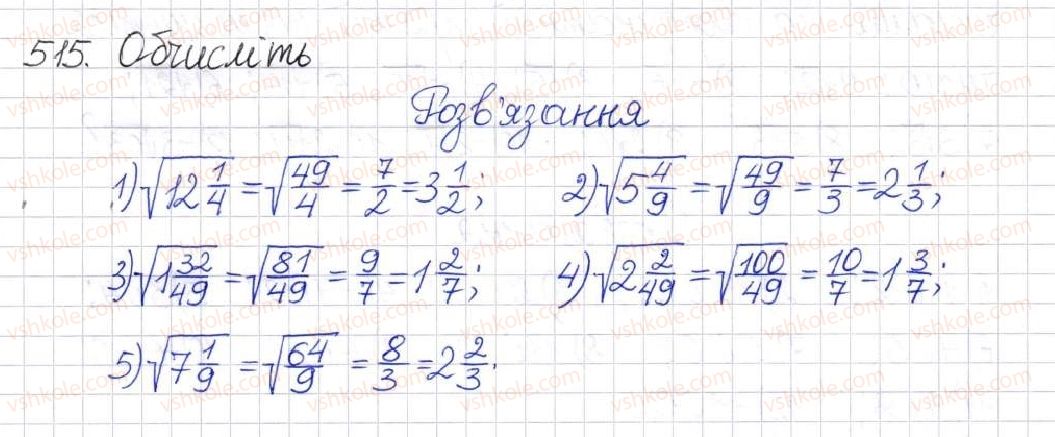 515. Обчисліть
Розв'язання
1) √(12 1/4) = √(49/4) = 7/2 = 3 1/2; 2) √(5 4/9) = √(49/9) = 7/3 = 2 1/3;
3) √(1 32/49) = √(81/49) = 9/7 = 1 2/7; 4) √(2 2/49) = √(100/49) = 10/7 = 1 3/7;
5) √(7 1/9) = √(64/9) = 8/3 = 2 2/3.